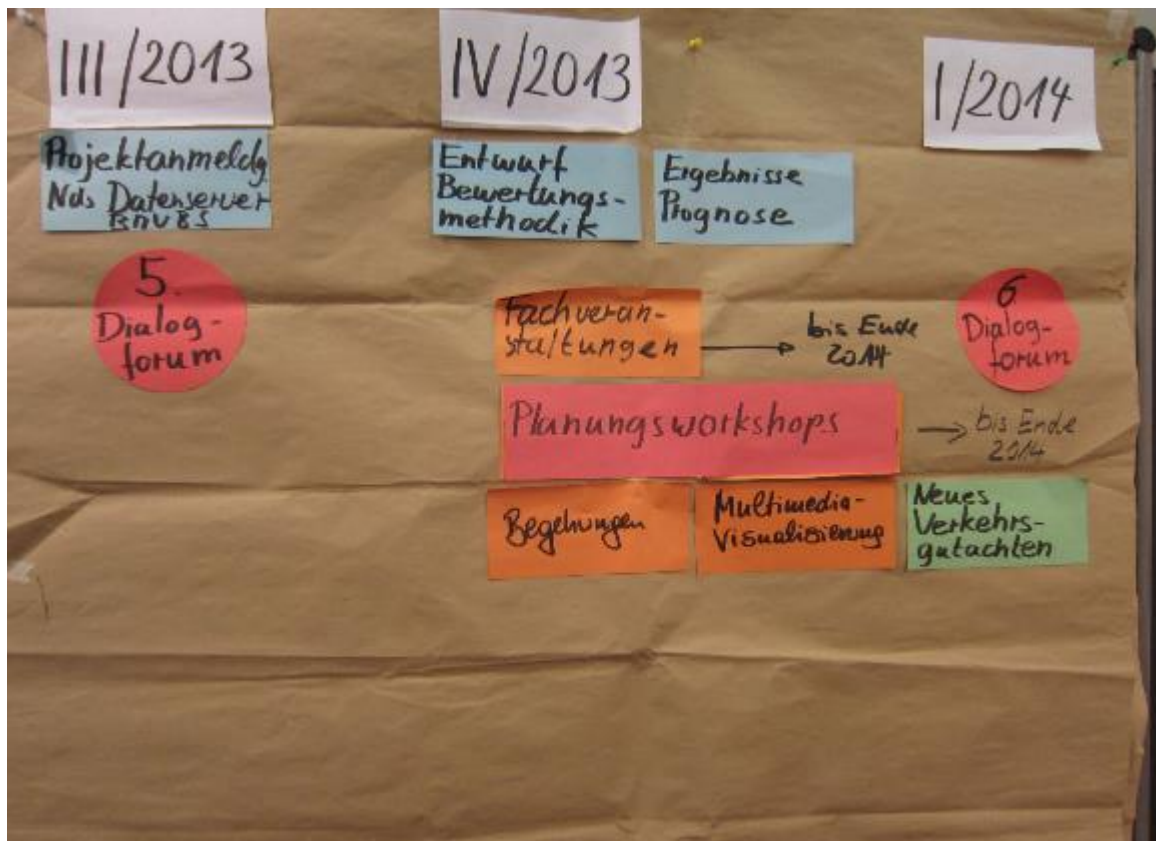 III/2013
IV/2013
I/2014
Projektanmeldg
Nds Datenserver
BMVBS
Entwurf
Bewertungs-
methodik
Ergebnisse
Prognose
5.
Dialog-
forum
Fachveran-
staltungen
bis Ende
2014
6
Dialog-
forum
Planungsworkshops
bis Ende
2014
Begehungen
Multimedia-
Visualisierung
Neues
Verkehrs-
gutachten